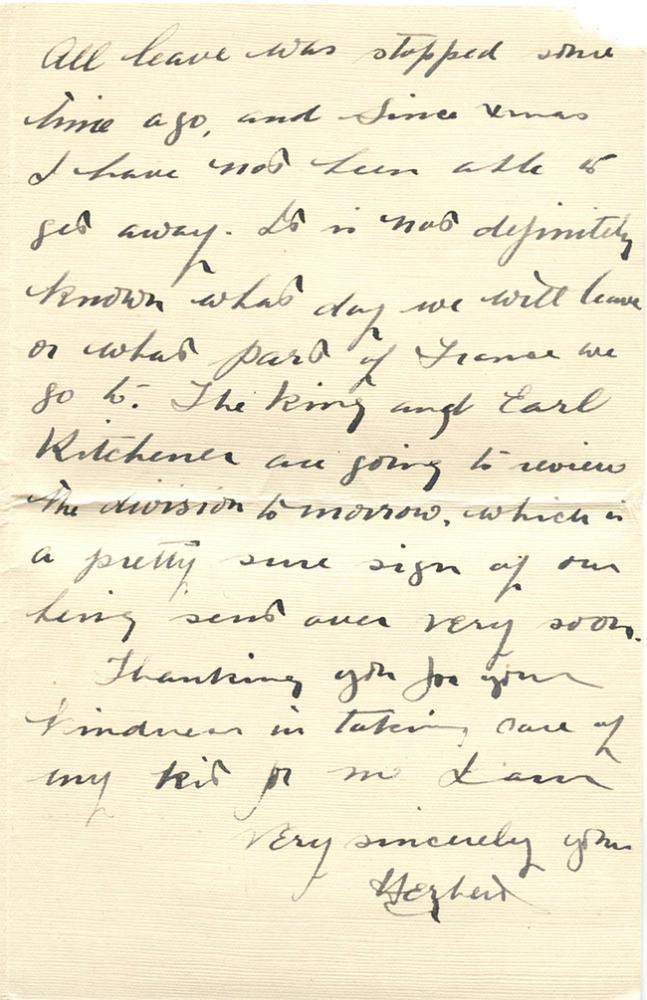 All leave was stopped some
time ago, and since xmas
I have not been able to
get away. It is not definitely
known what day we will leave
or what part of France we
go to. The King and Earl
Kitchener are going to review
the division tomorrow, which is
a pretty sure sign of our
being sent over very soon.
Thanking you for your
kindness in taking care of
my kit for me I am
Very sincerely yours
Herbert